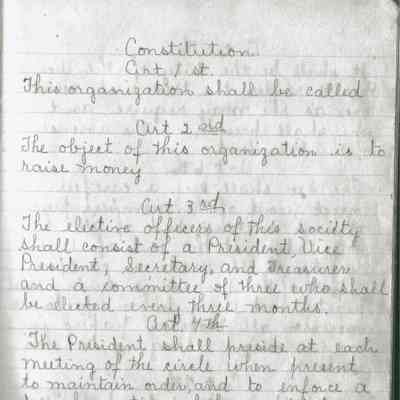 Constitution
Art 1st.
This organization shall be called
Art 2nd
The object of this organization is to
raise money
Art 3rd
The elective officers of this society
shall consist of a President, Vice
President, Secretary, and Treasurer
and a committee of three who shall
be elected every three months.
Art. 4th
The President shall preside at each
meeting of the circle when present
to maintain order, and to enforce a